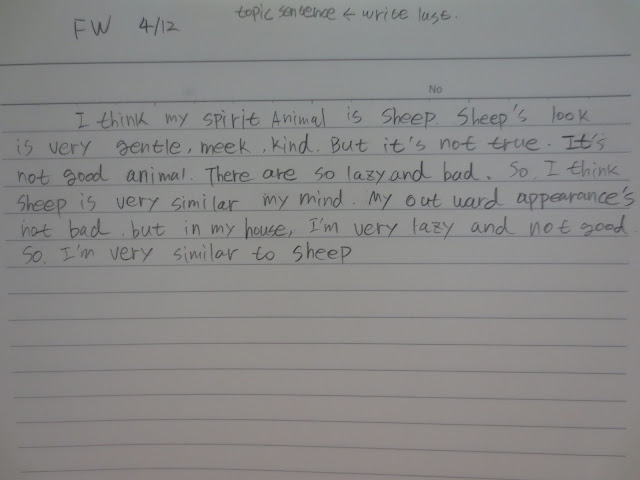 topic sentence ← write last.
FW 4/12
No
I think my spirit Animal is sheep. Sheep's look
is very gentle, meek, kind. But it's not true. It's
not good animal. There are so lazy and bad. So, I think
sheep is very similar my mind. My out ward appearance's
not bad, but in my house, I'm very lazy and not good.
So, I'm very similar to sheep